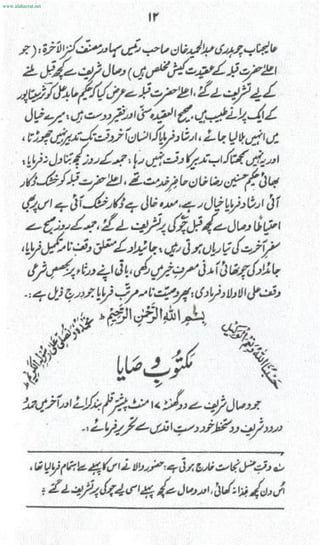 www.alahazrat.net
۱۲
عالیجناب چوہدری عبدالحمید خان صاحب رئیس سہاور مصنف کنز الآخرۃ: (جو
اعلیٰحضرت قبلہ کے عقیدت کیش مخلص ہیں) وصال شریف سے کچھ قبل ملنے
کے لیے تشریف لے گئے، اعلیٰحضرت قبلہ سے عرض کیا کہ حکیم عابد علی کوثر سیتاپور
کے ایک پرانے طبیب ہیں، صحیح العقیدہ سنی اور فقیر دوست ہیں؛ میرے خیال
میں انہیں بلا لیا جائے، ارشاد فرمایا کہ انسان آخر وقت تک تدبیر نہیں چھوڑتا،
اور یہ نہیں سمجھتا کہ اب تدبیر کا وقت نہیں رہا؛ جمعہ کے روز کچھ تناول نہ فرمایا؛
بھائی حکیم حسنین رضا خان حاضر خدمت تھے، اعلیٰحضرت قبلہ کو خشک ڈکار
آئی ارشاد فرمایا خیال رہے، معدہ خالی ہے ڈکار خشک آئی ہے اس پر بھی
احتیاطاً وصال سے کچھ قبل چوکی پر تشریف لے گئے، جمعہ کے روز صبح سے
سفر آخرت کی تیاریاں ہوتی رہیں، جائیداد کے متعلق وقف نامہ تکمیل فرمایا،
جائداد کی چوتھائی آمدنی مصرف خیر میں رکھی، باقی اپنے ورثاء پر بحصص شرعی
وقف علی الاولاد فرما دی؛ پھر وصیت نامہ مرتب فرمایا جو درج ذیل ہے:۔
بِسْمِ اللهِ الرَّحْمٰنِ الرَّحِيْمِ
مکتوب وصایا
جو وصال شریف سے دو گھنٹے ۱۷ منٹ پیشتر قلم بند کرائے اور آخر میں حمد
درود شریف و دستخط خود دست اقدس سے تحریر فرمائے:۔
وقت غسل نجاست خارج ہوتی ہے؛ حضور والا نے اس کا پہلے سے اہتمام فرمایا تھا،
اُس دن کچھ غذا نہ کھائی، اور وصال سے کچھ پہلے اسی لیے چوکی پر تشریف لے گئے